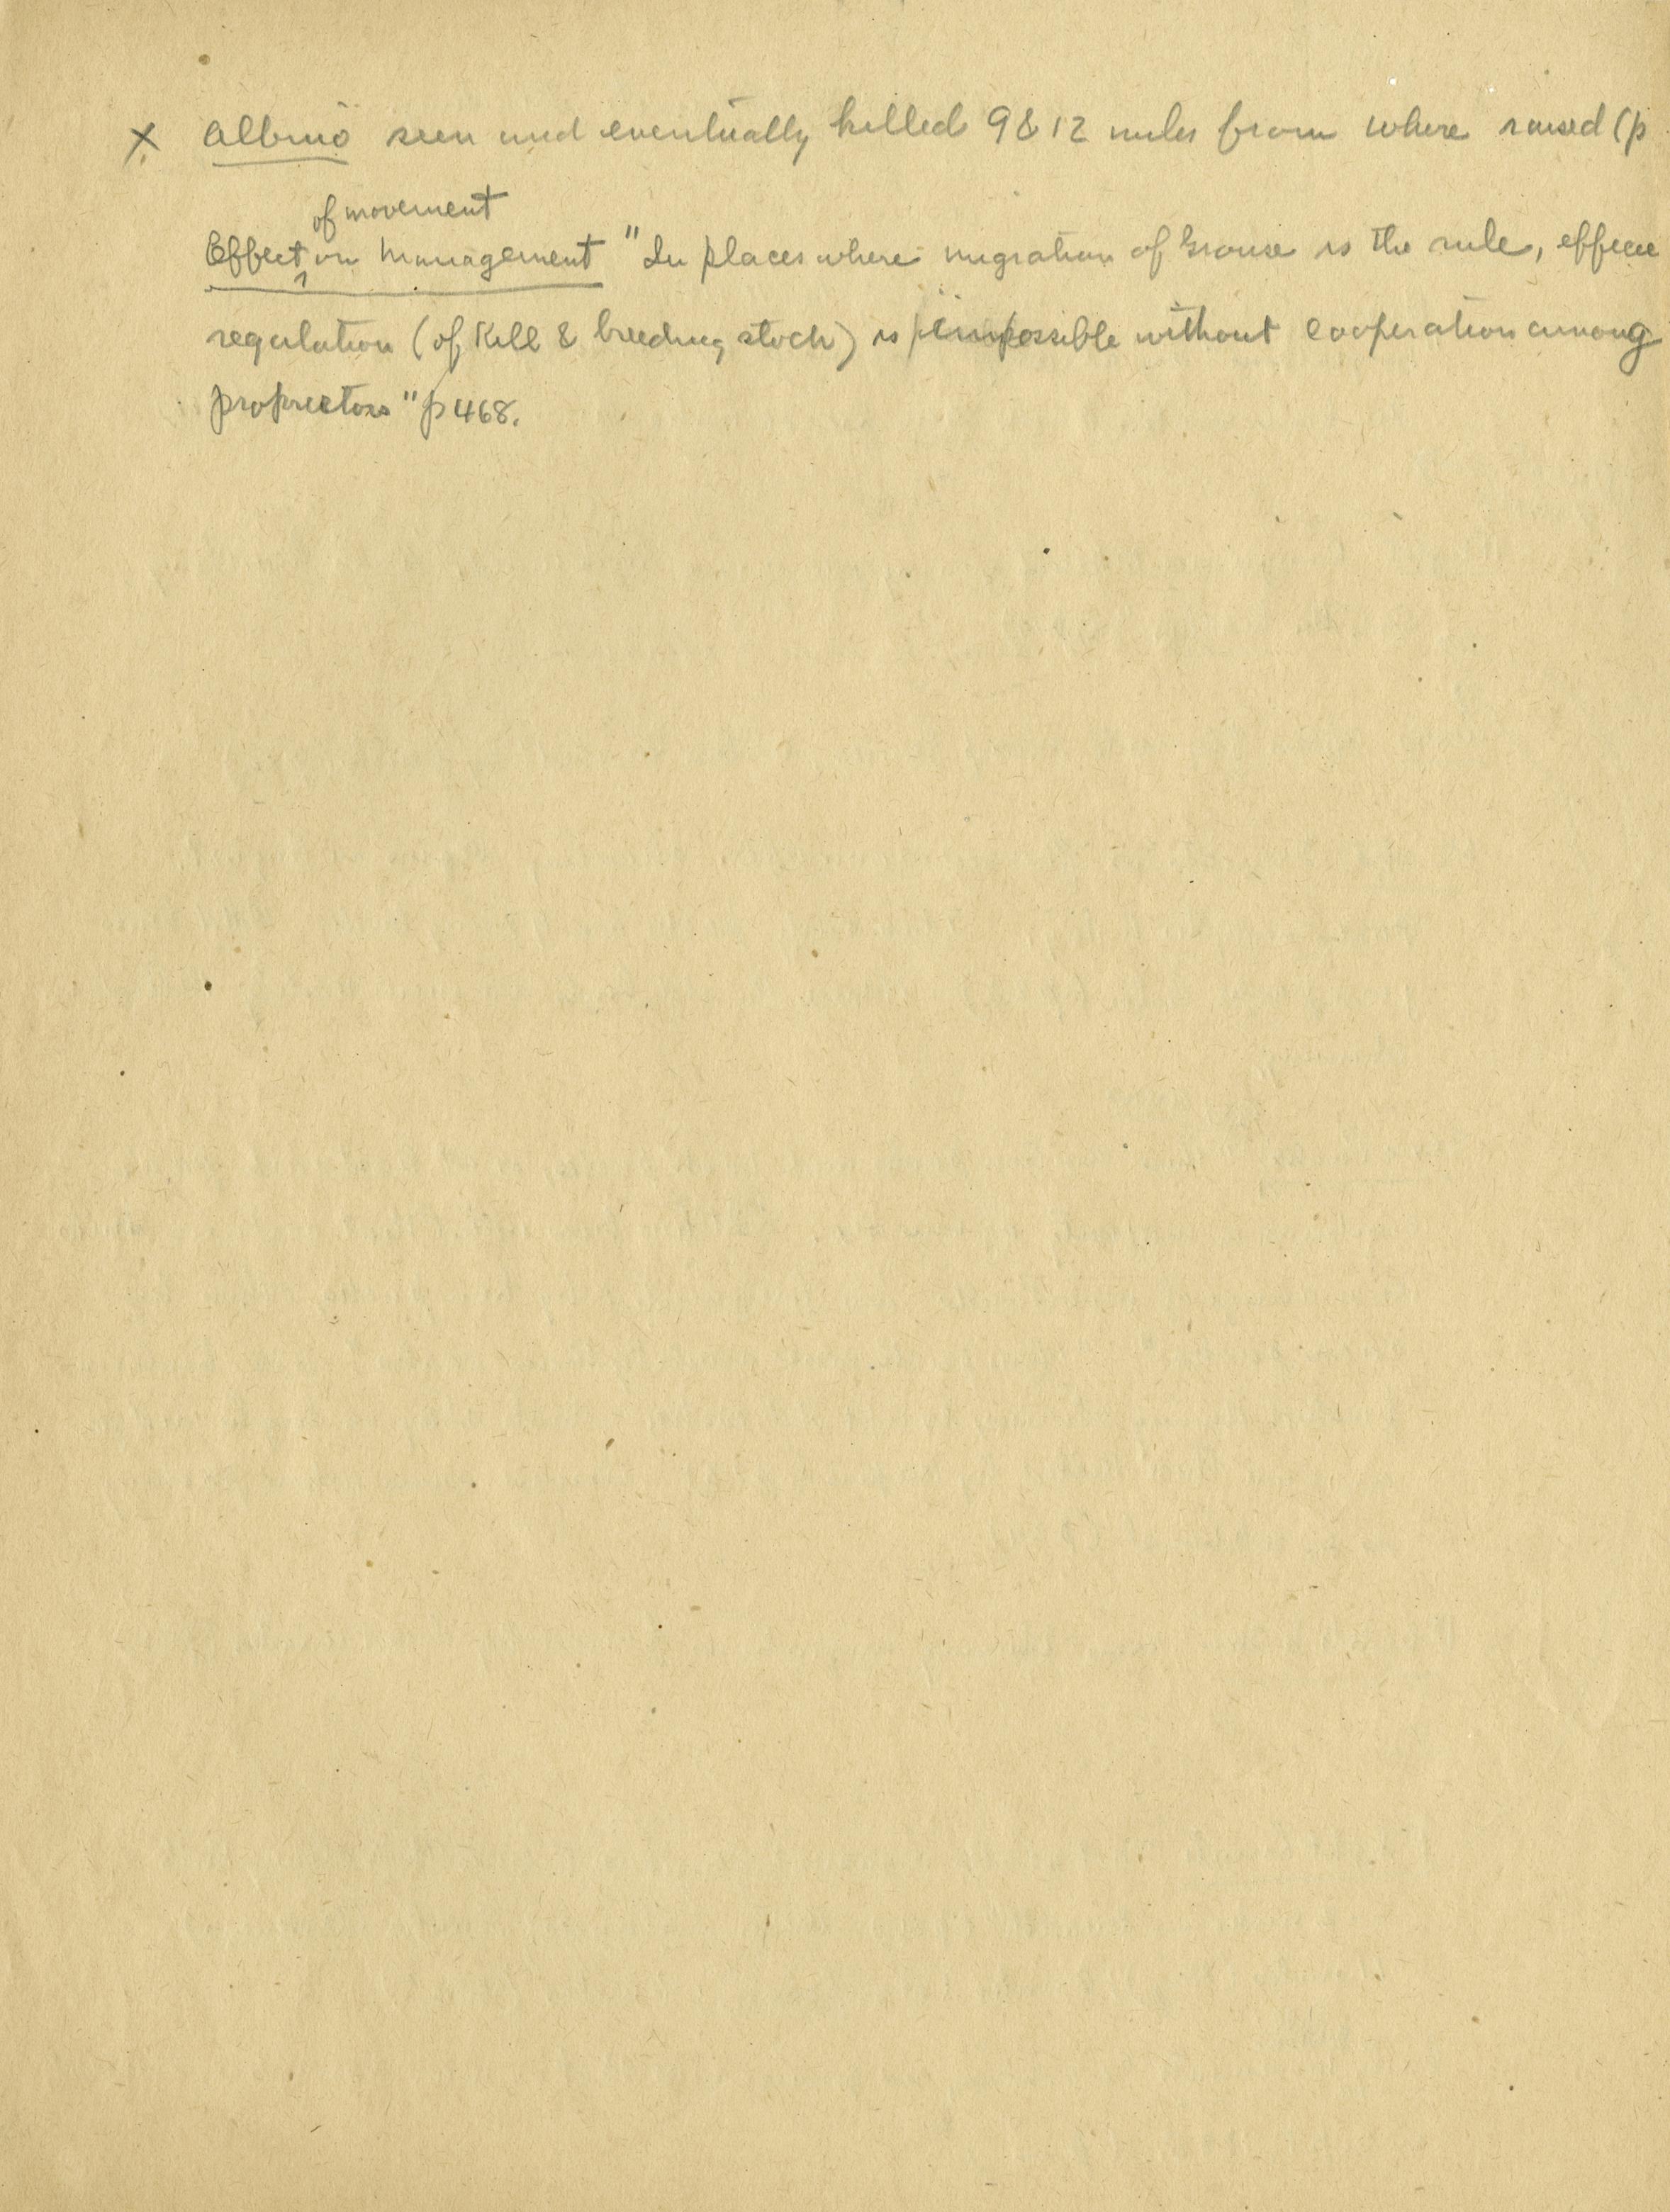 X Albino seen and eventually killed 9 & 12 miles from where raised (p
of movement
Effect on management "In places where migration of Grouse is the rule,
regulation (of kill & breeding stock) is impossible without cooperation among
proprietors" p 468.